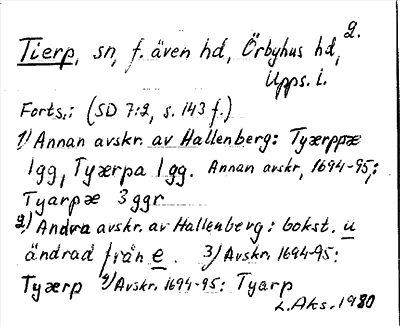 2.
Tierp, sn, f. även hd, Örbyhus hd,
Upps. l.
Forts.: (SD 7:2, s. 143 f.)
1) Annan avskr. av Hallenberg: Tyærppæ
1gg, Tyærpa 1gg. Annan avskr, 1694-95:
Tyarpæ 3 ggr
2) Andra avskr. av Hallenberg: bokst. u
ändrad från e. 3) Avskr. 1694-95:
Tyærp 4) Avskr. 1694-95: Tyarp
L. Aks. 1980